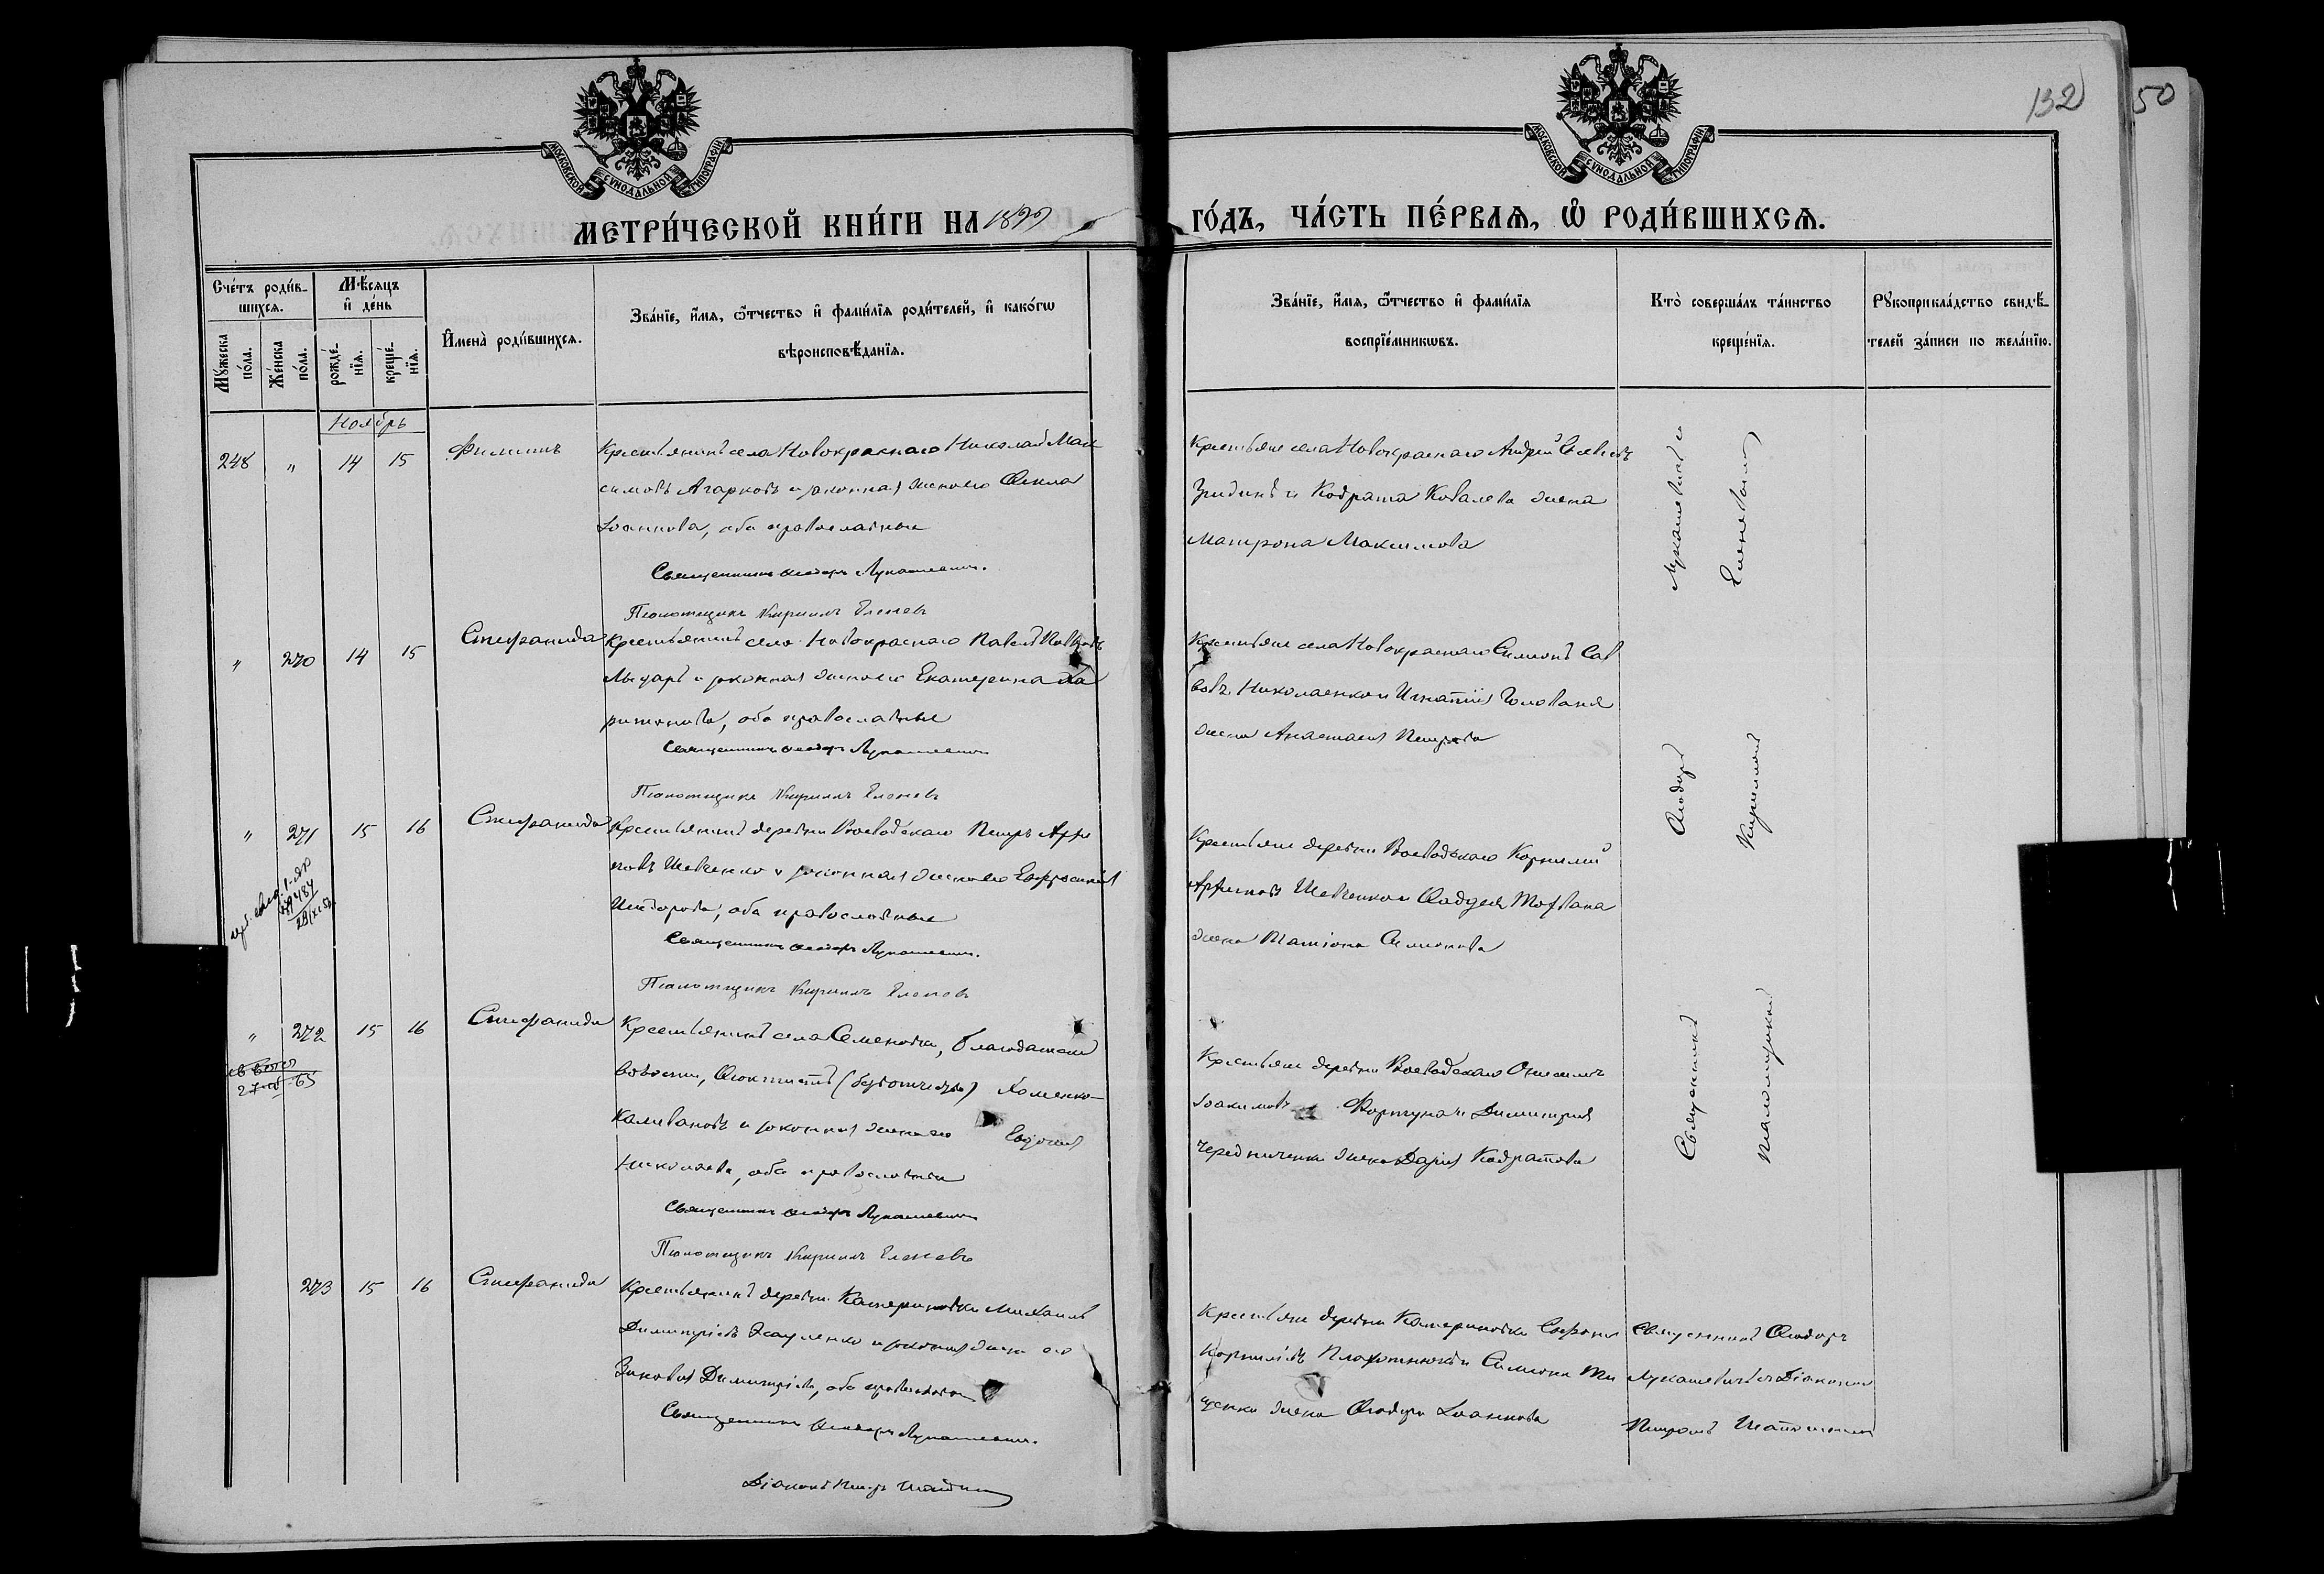 132
50
МОСКОВСКОЙ СУНОДАЛЬНОЙ ТИПОГРАФІИ
МОСКОВСКОЙ СУНОДАЛЬНОЙ ТИПОГРАФІИ
МЕТРИ́ЧЕСКОЙ КНИ́ГИ НА 1899
ГО́ДЪ, ЧА́СТЬ ПЕ́РВАѦ, Ѡ РОДИ́ВШИХСѦ.
Сче́тъ роди́в-
шихсѧ.
Мꙋ́жеска по́ла.
Же́нска по́ла.
Мѣ́сѧцъ
и҆ де́нь
рожде́-
нїѧ.
креще́-
нїѧ.
И҆мена̀ роди́вшихсѧ.
Зва́нїе, и҆́мѧ, ѻ҆́тчество и҆ фами́лїѧ роди́телей, и҆ како́гѡ
вѣроисповѣ́данїѧ.
Зва́нїе, и҆́мѧ, ѻ҆́тчество и҆ фами́лїѧ
воспрїе́мникѡвъ.
Кто̀ соверша́лъ та́инство
креще́нїѧ.
Рꙋкоприкла́дство свидѣ́-
телей за́писи по жела́нїю.
Ноябрь
248 " 14 15 Филиппъ
Крестьянинъ села Новокраснаго Николай Мак
симовъ Агарковъ и законная жена его Ѳекла
Іоаннова, оба православные
Священникъ Ѳеодоръ Лукашевичъ.
Псаломщикъ Кириллъ Еленевъ
Крестьяне села Новокраснаго Андрей
и Кодрата Ковалева жена
Матрона Максимова
" 270 14 15 Стефанида
Крестьянинъ села Новокраснаго Павелъ
и законная жена его Екатерина Ха
ритонова, оба православные
Священникъ Ѳеодоръ Лукашевичъ
Псаломщикъ Кириллъ Еленевъ
Крестьяне села Новокраснаго Симеонъ Сав
вовъ Николаенко и Игнатія Голована
жена Анастасія Петрова
" 271 15 16 Стефанида
Крестьянинъ деревни Воеводскаго Петръ Архи
повъ Шевченко и законная жена его Евфросинія
Исидорова, оба православные
Священникъ Ѳеодоръ Лукашевичъ.
Псаломщикъ Кириллъ Еленевъ
Крестьяне деревни Воеводскаго Корнилій
Архиповъ Шевченко и Ѳаддея
жена Татіана Симеонова
" 272 15 16 Стефанида
Крестьянинъ села Семеновки, Благодатной
волости, Ѳеоктистъ (безъ отчества) Хоменко-
Каливановъ и законная жена его Евдокія
Николаева, оба православные
Священникъ Ѳеодоръ Лукашевичъ
Псаломщикъ Кириллъ Еленевъ
Крестьяне деревни Воеводскаго Онисимъ
Іоакимовъ Фортуна и Димитрія
Чередниченка жена Дарія Кодратова
Священникъ Ѳеодоръ Лукашевичъ и
Псаломщикъ Кириллъ Еленевъ
273 15 16 Стефанида
Крестьянинъ деревни Катериновки Михаилъ
Димитріевъ и законная жена его
Зиновія Димитріева, оба православные
Священникъ Ѳеодоръ Лукашевичъ.
Діаконъ Петръ
Крестьяне деревни Катериновки Софроній
Корниліевъ и Симеона Ти
щенка жена Ѳеодора Іоаннова
Священникъ Ѳеодоръ
Лукашевичъ и Діаконъ
Петръ